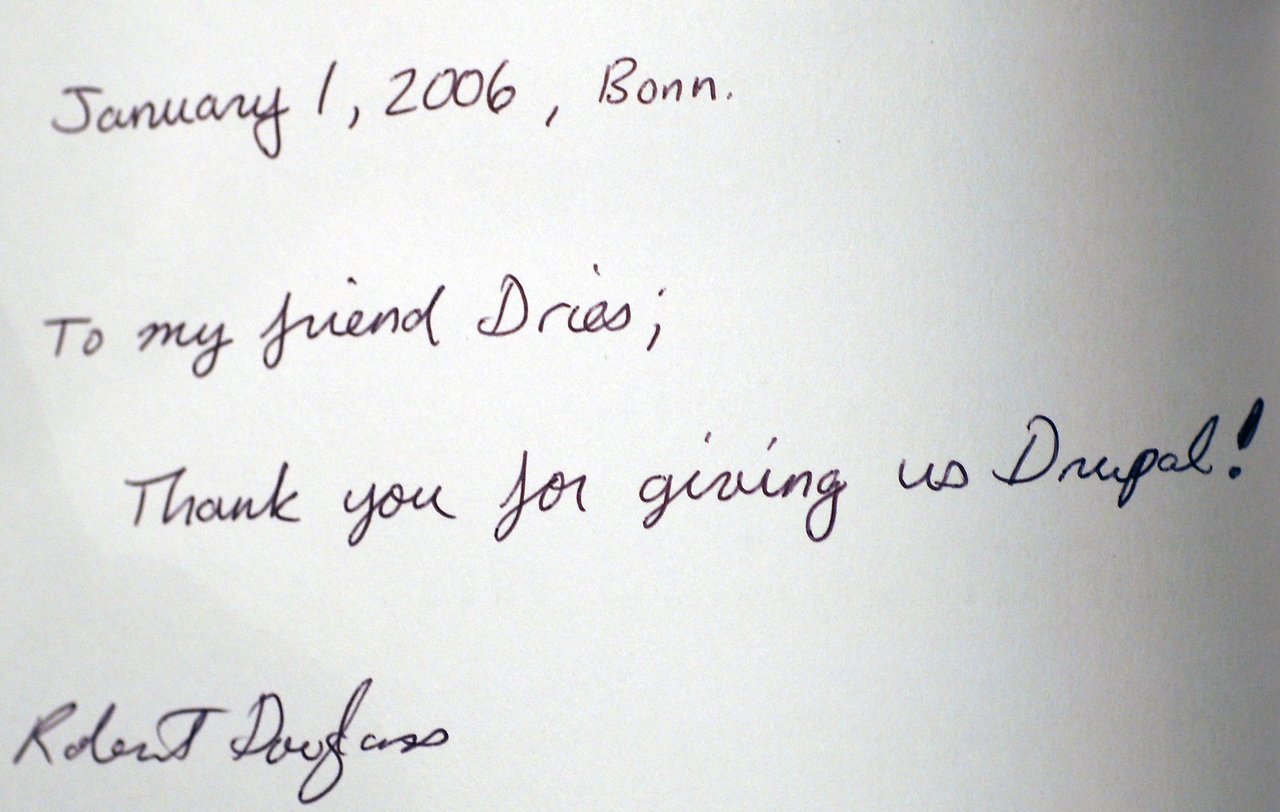 January 1, 2006, Bonn.
To my friend Dries;
Thank you for giving us Drupal!
Robert Douglass